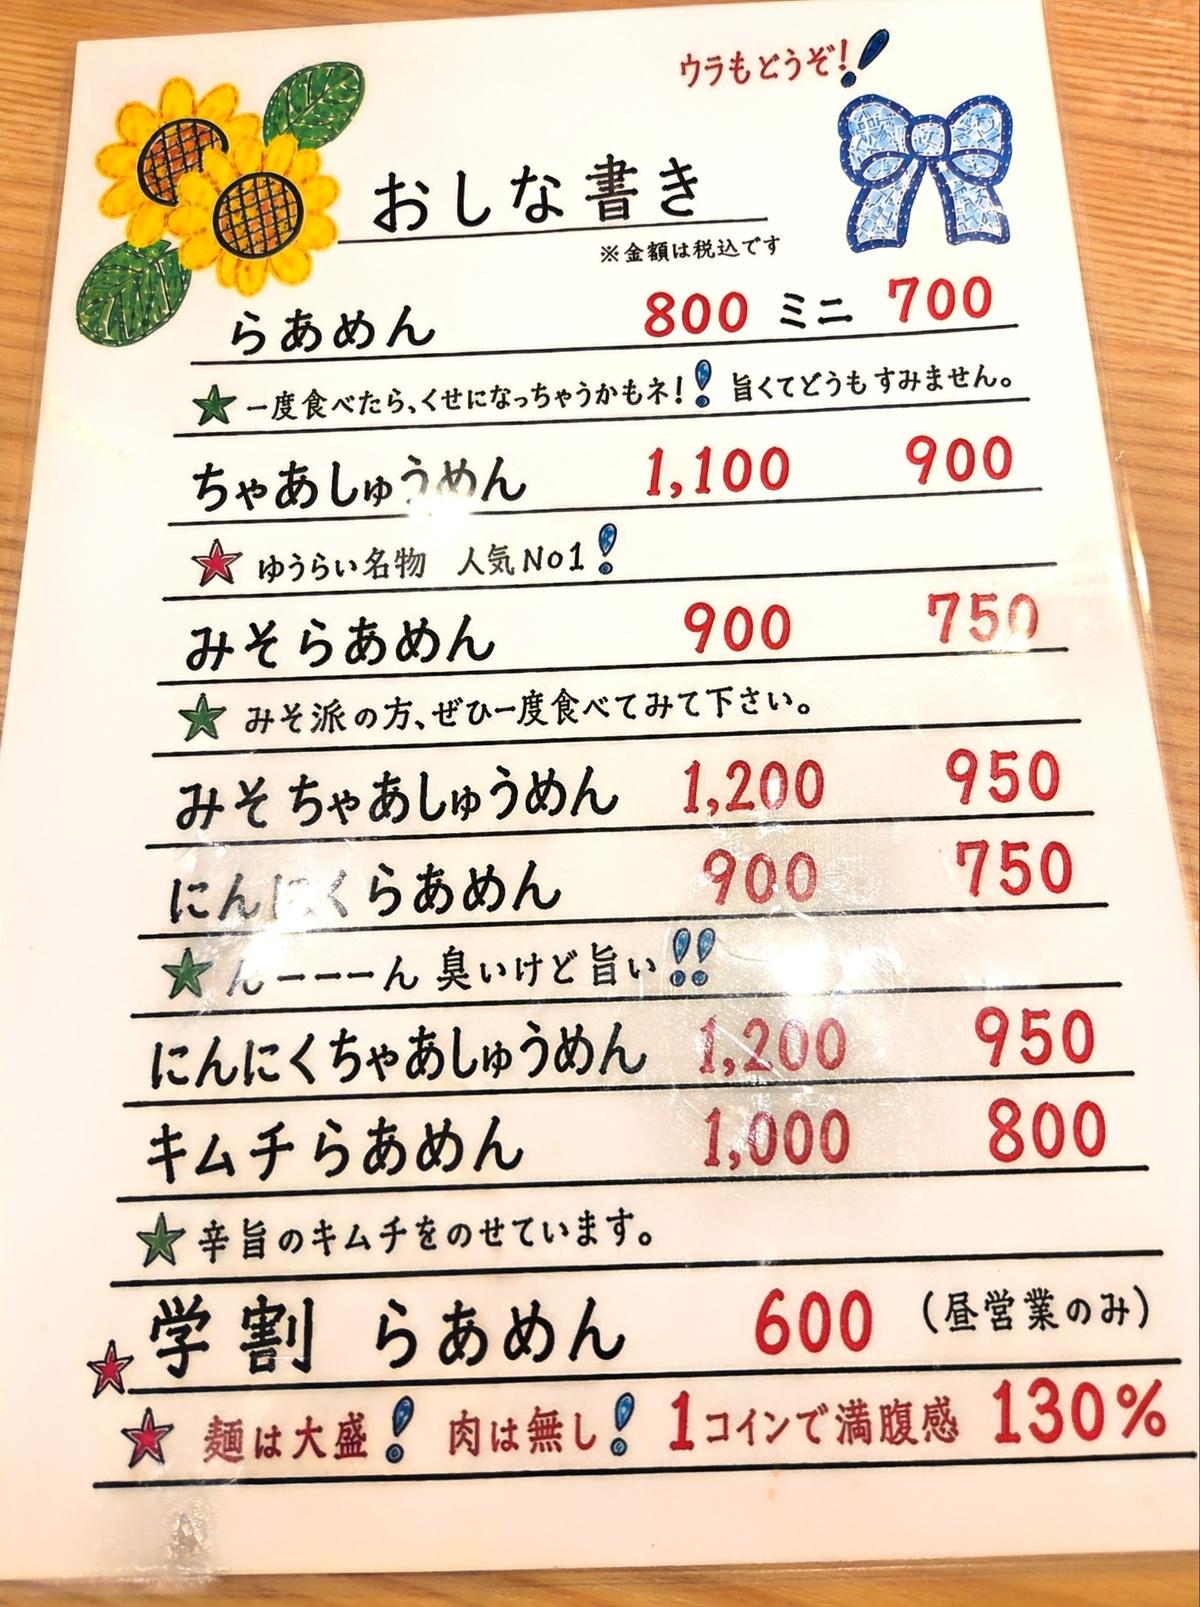 ウラもどうぞ!!
おしな書き
※金額は税込です
らあめん 800 ミニ 700
★一度食べたら、くせになっちゃうかもネ!! 旨くてどうもすみません。
ちゃあしゅうめん 1,100 900
★ゆうらい名物 人気No1!
みそらあめん 900 750
★みそ派の方、ぜひ一度食べてみて下さい。
みそちゃあしゅうめん 1,200 950
にんにくらあめん 900 750
★んーーーん 臭いけど旨い!!
にんにくちゃあしゅうめん 1,200 950
キムチらあめん 1,000 800
★辛旨のキムチをのせています。
★学割 らあめん 600 (昼営業のみ)
★麺は大盛! 肉は無し! 1コインで満腹感 130%